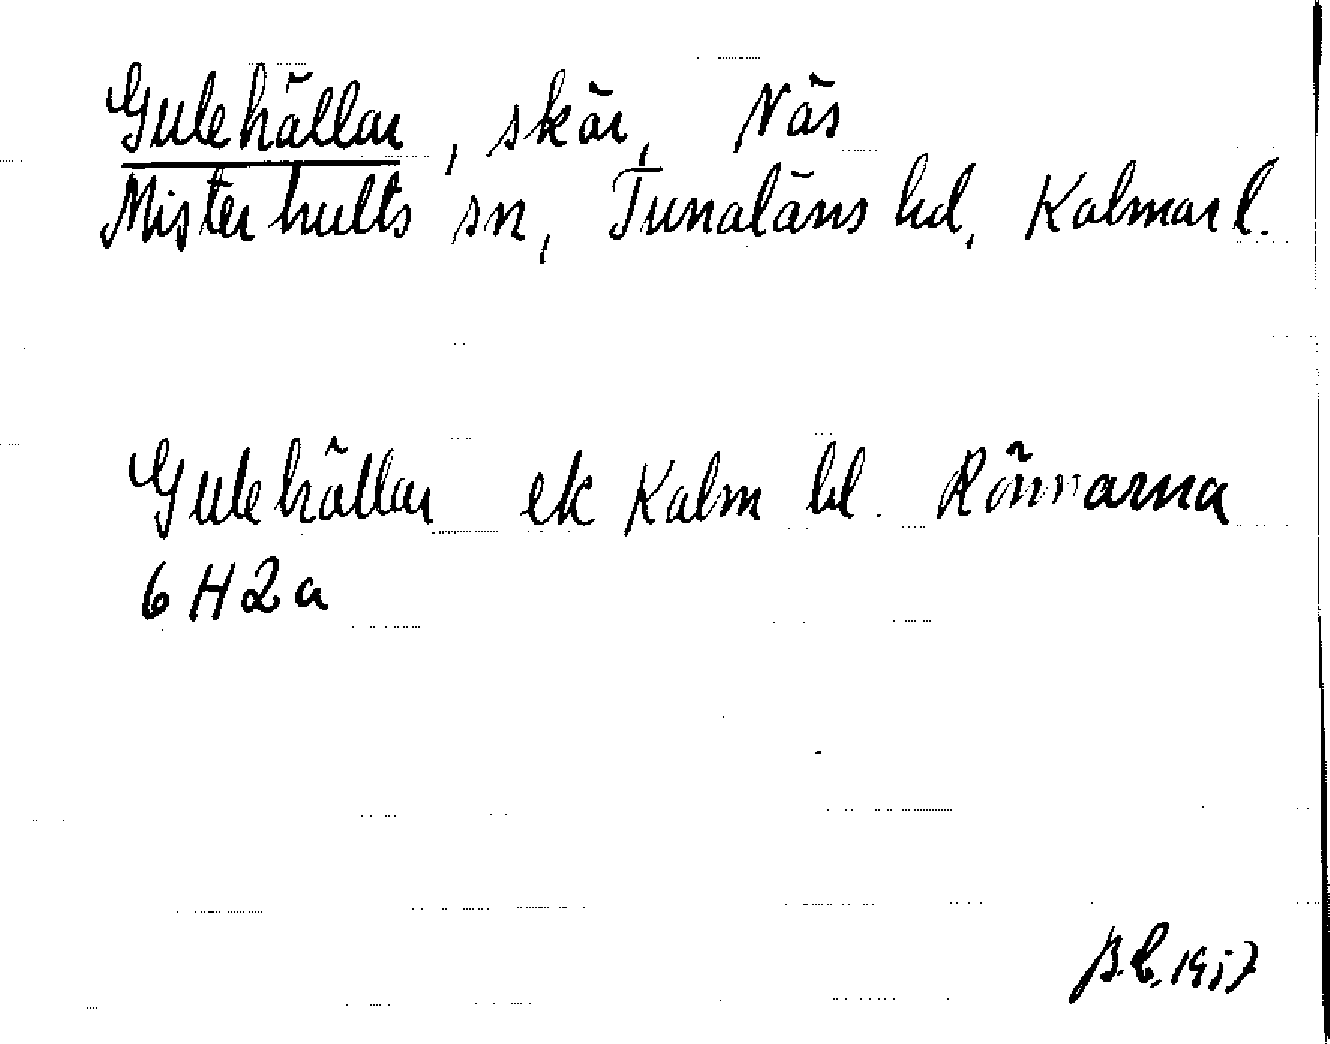 Gulehällar, skär, Näs
Misterhults sn, Tunaläns hd, Kalmar l.
Gulehällar ek Kalm bl. Rönnarna
6 H 2 a
1957